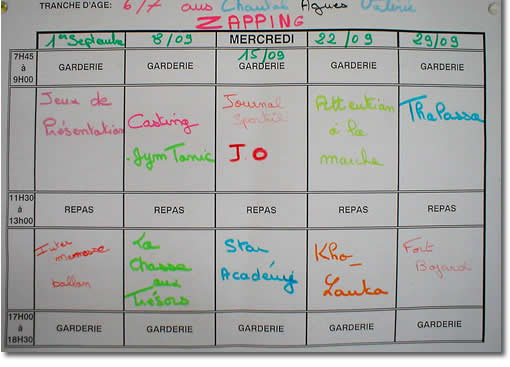 TRANCHE D'AGE: 6/7 ans Chantal Agnes Valerie
ZAPPING
1er Septembre 8/09 MERCREDI 22/09 29/09
15/09
7H45 à 9H00 GARDERIE GARDERIE GARDERIE GARDERIE GARDERIE
Jeux de Présentation
Casting
Gym Tonic
Journal Sportif
J.O
Attention à la marche
Thalassa
11H30 à 13h00 REPAS REPAS REPAS REPAS REPAS
Inter
ballon
La Chasse aux Trésors
Star Académy
Kho_Lanta
Fort Boyard
17H00 à 18H30 GARDERIE GARDERIE GARDERIE GARDERIE GARDERIE